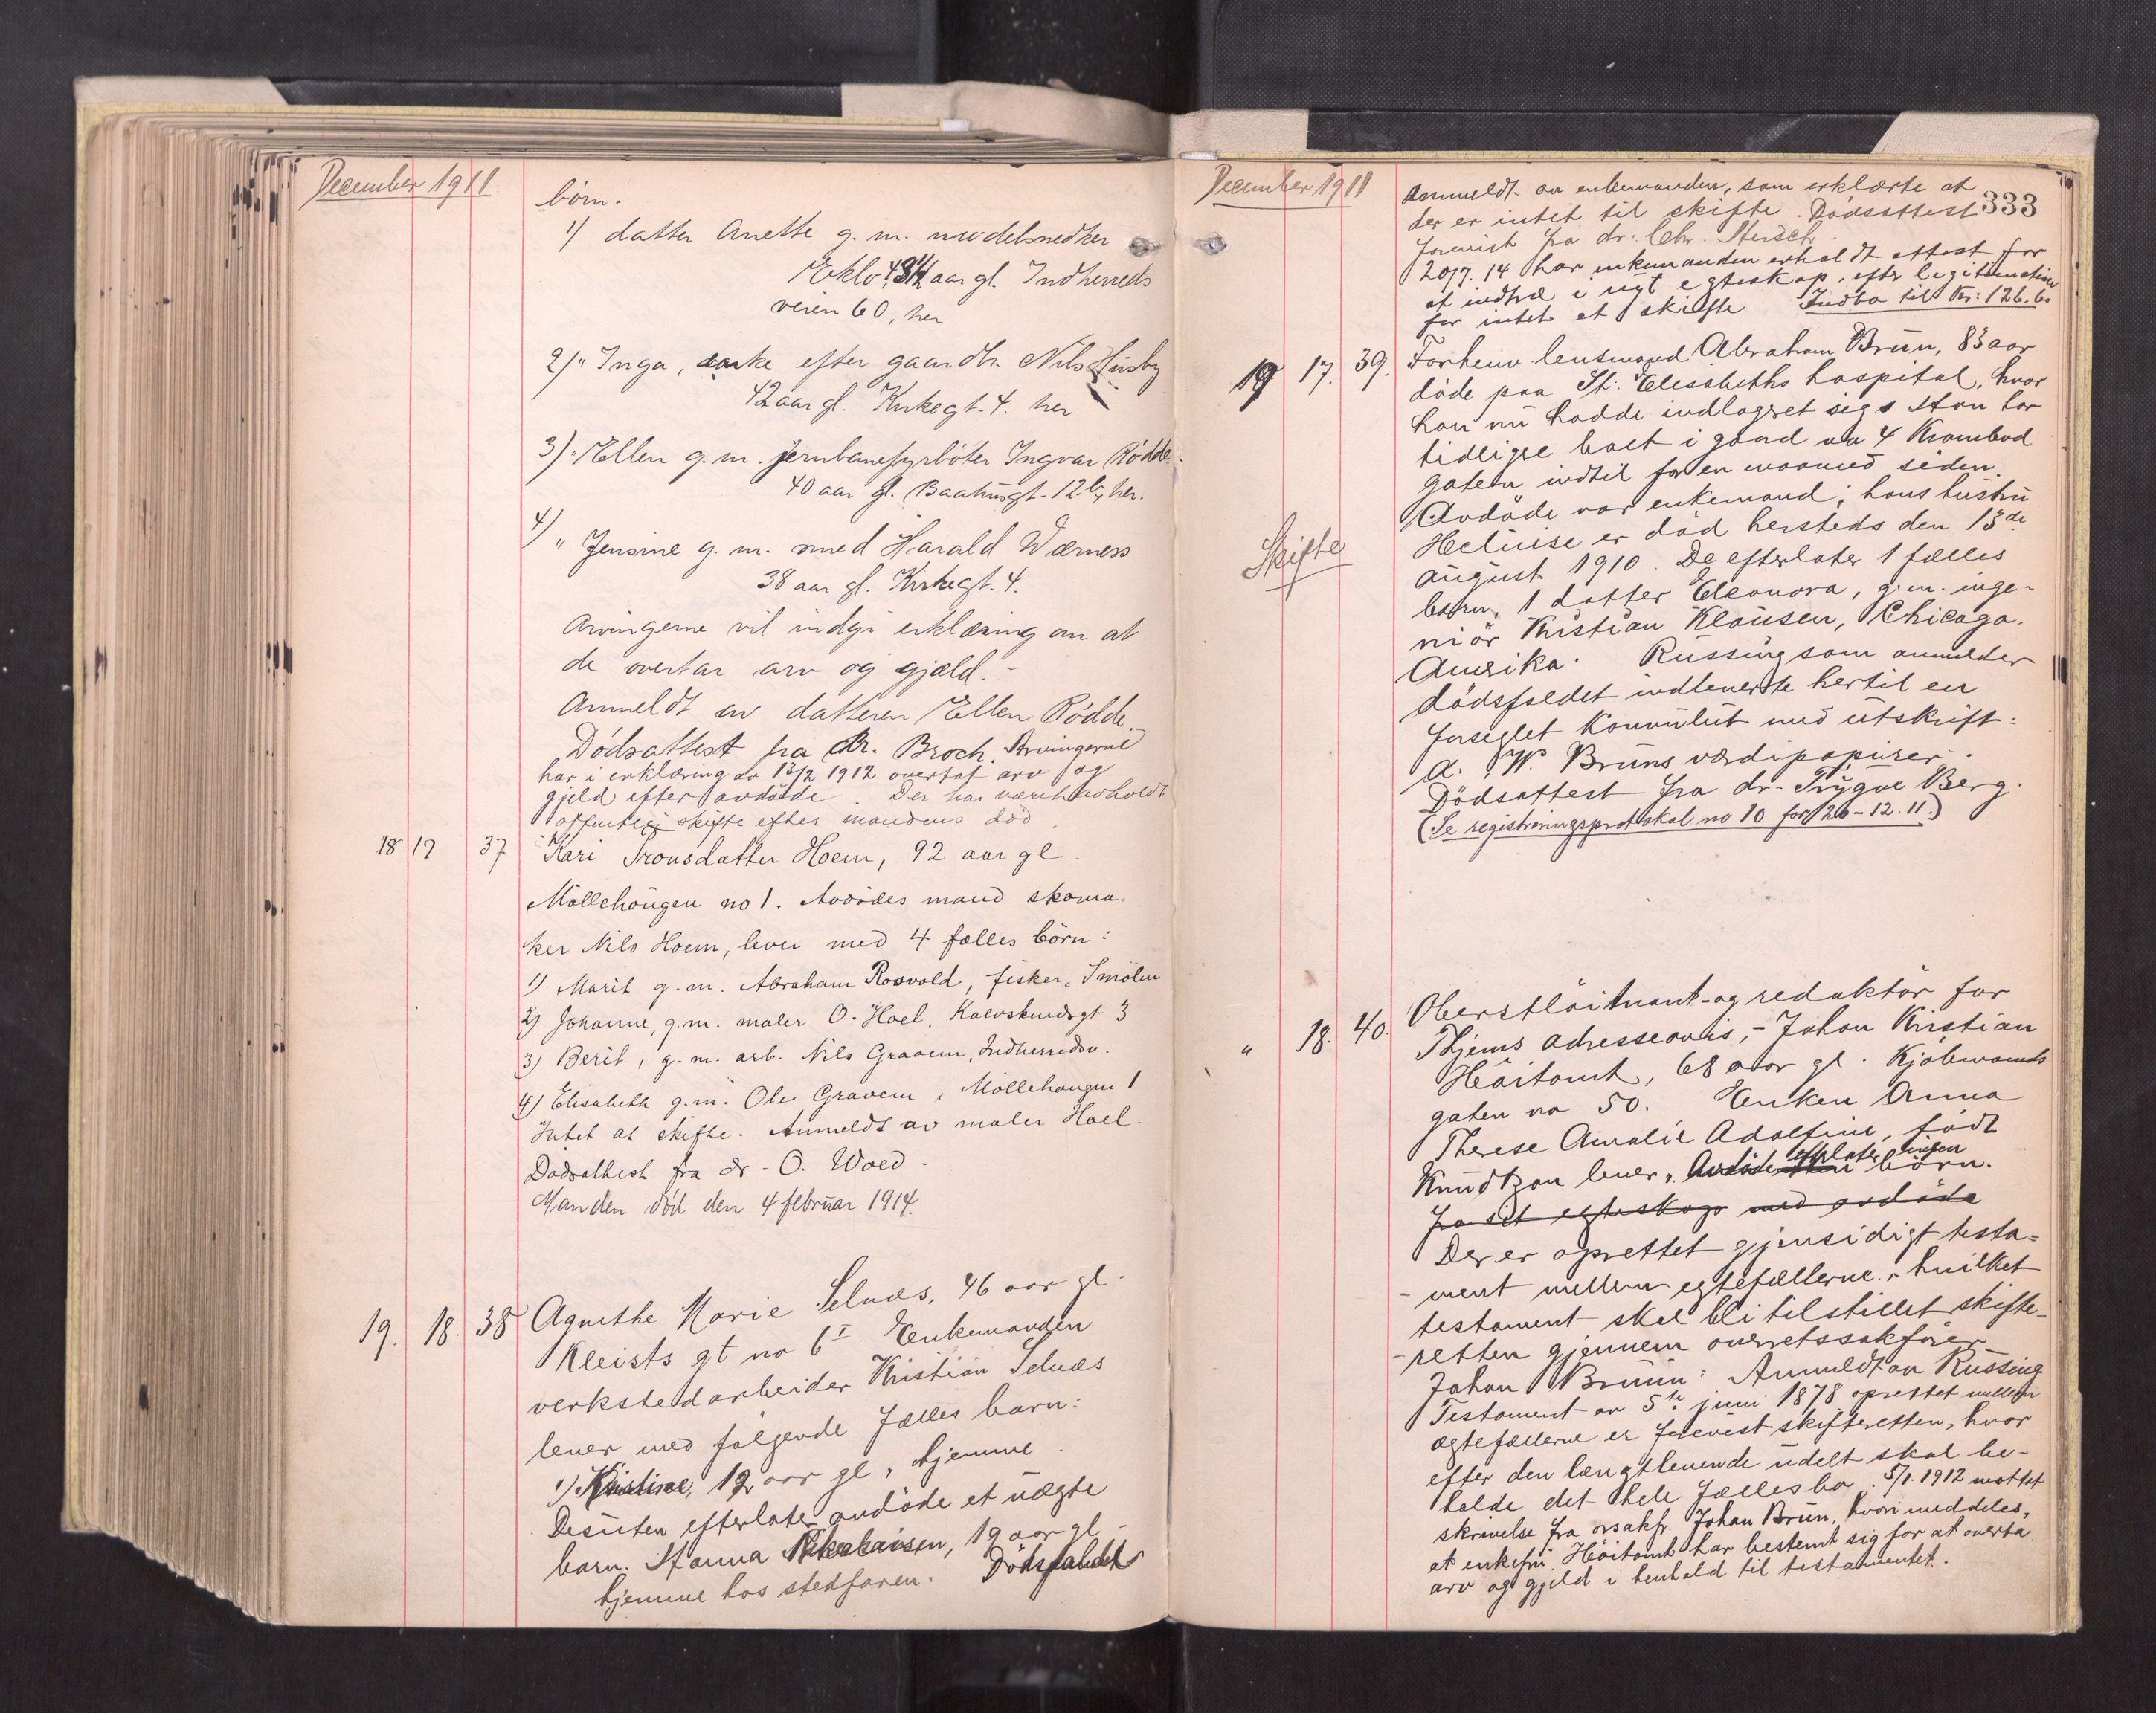 December 1911
børn.
1) datter Anette g. m. modelsnedker
Eklo, 44 aar gl. Indherreds
veien 60, her
2) " Inga, enke efter gaardbr. Nils Husby
42 aar gl. Kirkegt. 4. her
3) " Ellen g. m. jernbanefyrbøter Ingvar Rødde.
40 aar gl. Baahusgt. 12 b, her.
4)
" Jensine g. m. smed Harald Wærness
38 aar gl. Kirkegt. 4.
Arvingerne vil indgi erklæring om at
de overtar arv og gjæld.-
Anmeldt av datteren Ellen Rødde.
Dødsattest fra Dr. Broch. Arvingerne
har i erklæring av 13/2 1912 overtat arv og
gjeld efter avdøde. Der har været avholdt
offentlig skifte efter mandens død.
18 17 37 Kari Tronsdatter Hoem, 92 aar gl.
Møllehaugen no 1. Avdødes mand skoma-
ker Nils Hoem, lever med 4 fælles børn:
1) Marit g. m. Abraham Rosvold, fisker, Smølen
2) Johanne, g.m. maler O. Hoel, Kalvskindsgt 3
3) Berit, g. m. arb. Nils Gravem, Indherredsv.
4) Elisabeth g. m. Ole Gravem, Møllehaugen 1
Intet at skifte. Anmeldt av maler Hoel.
Dødsattest fra dr. O. Woed.
Manden død den 4 februar 1914.
19. 18. 38 Agnethe Marie Selnæs, 46 aar gl.
Kleists gt no 6 I Enkemanden
verkstedarbeider Kristian Selnæs
lever med følgende fælles barn:
1) Kristine, 12 aar gl, hjemme.
Desuten efterlater avdøde et uægte
barn. Hanna Nikolaisen, 19 aar gl
hjemme hos stedfaren. Dødsfaldet
December 1911
333
Anmeldt av enkemanden, som erklærte at
der er intet til skifte. Dødsattest
forevist fra dr. Chr.
20/7. 14 har enkemanden erholdt attest for
at indtræ i nyt egteskap, efter legitimation
for intet et skifte Indbo til Kr: 126.60
19 17. 39. Forhenv. lensmand Abraham Brun, 83 aar
døde paa St. Elisabeths hospital, hvor
han nu hadde indlagret sig. Han har
tidligere boet i gaard no 4 Krambod
gaten indtil for en maaned siden.
Avdøde var enkemand; hans hustru
Skifte
Heluise er død hersteds den 13de
august 1910. De efterlater 1 fælles
barn, 1 datter Eleonora, g. m. inge-
niør Kristian Klausen, Chicago.
Amerika. Russing som anmelder
dødsfaldet indleverte hertil en
forseglet konvolut med utskrift:
A. W. Bruns værdipapirer.
Dødsattest fra dr. Trygve Berg.
(Se registreringsprotokol no 10 for 20-12.11.)
" 18. 40. Oberstløitnant og redaktør for
Thjems adresseavis, - Johan Kristian
Høitomt, 68 aar gl. Kjøbmands
gaten no 50. Enken Anna
Therese Amalie Adolfine, født
Knudtzon lever. Avdøde efterlater ingen børn.
fra sit egteskap med avdøde
Der er oprettet gjensidigt testa-
-ment mellem egtefællerne, hvilket
testament skal bli tilstillet skifte-
-retten gjennem overretssakfører
Johan Bruun: Anmeldt av Russing
Testament av 5te juni 1878 oprettet mellem
egtefællerne er forevist skifteretten, hvor
efter den længstlevende udelt skal be-
holde det hele fællesbo. 5/1. 1912 mottat
skrivelse fra orsakfr. Johan Brun, hvori meddeles,
at enkefru Høitomt har bestemt sig for at overta
arv og gjeld i henhold til testamentet.